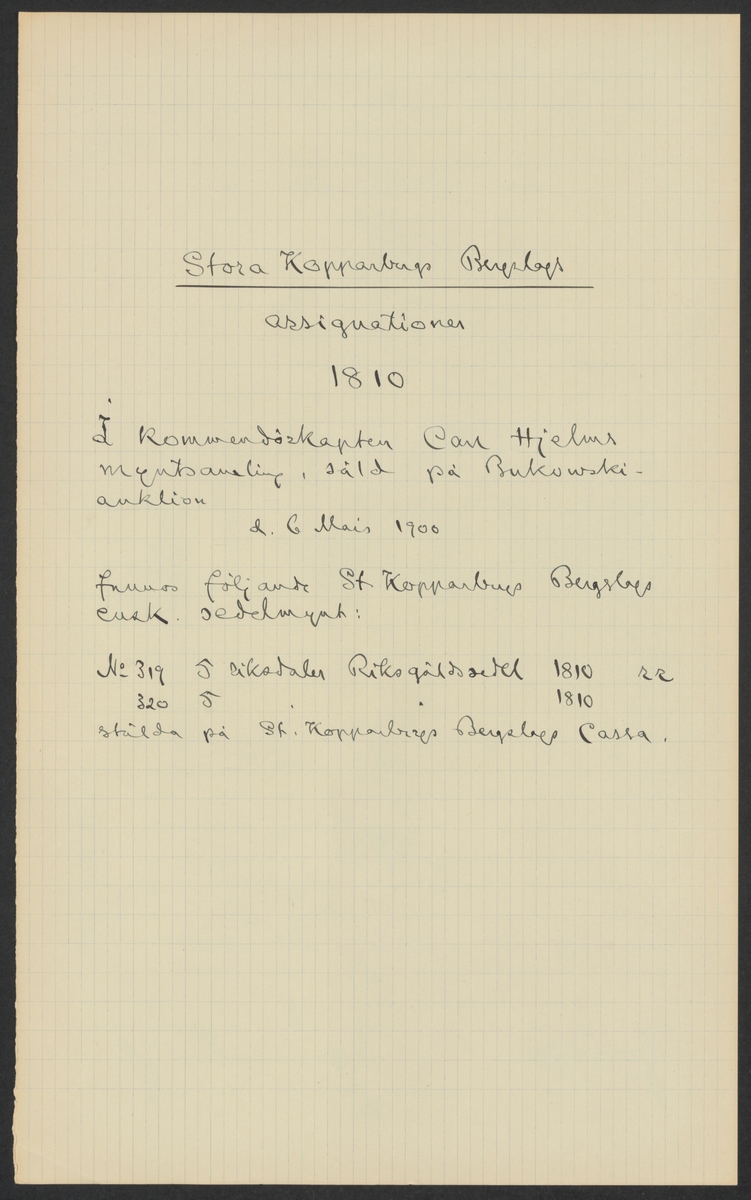 Stora Kopparbergs Bergslags
assignationer
1810
I kommendörkapten Carl Hjelms
myntsamling, såld på Bukowski-
auktion
d. 6 Mais 1900
funnos följande St Kopparbergs Bergslags
ensk. sedelmynt:
No 319 5 riksdaler Riksgäldssedel 1810 RR
320 5 " " 1810
stälda på St. Kopparbergs Bergslags Cassa.